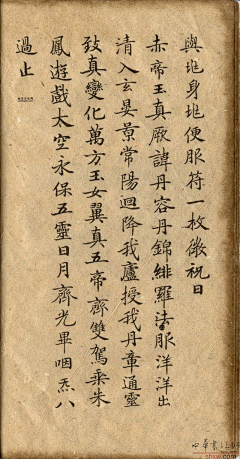 與軆身軆便服符一枚微祝曰
赤帝玉真厥諱丹容丹錦緋羅法服洋洋出
清入玄晏景常陽迴降我廬授我丹章通靈
致真變化萬方玉女翼真五帝齊雙駕乘朱
鳳遊戲太空永保五靈日月齊光畢咽炁八
過止